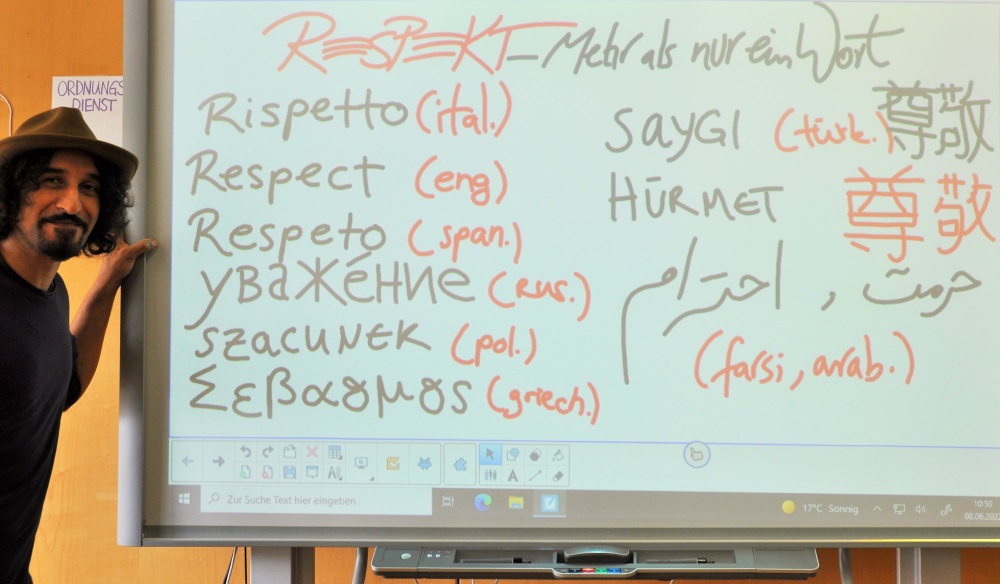 RESPEKT – Mehr als nur ein Wort
ORDNUNGS
DIENST
Rispetto (ital.)
Respect (eng)
Respeto (span.)
уваже́ние (rus.)
szacunek (pol.)
Σεβασμος (griech.)
SAYGI (türk.) 尊敬
HÜRMET 尊敬
احترام , حرمت
(farsi, arab.)
Zur Suche Text hier eingeben
17°C Sonnig
10:50